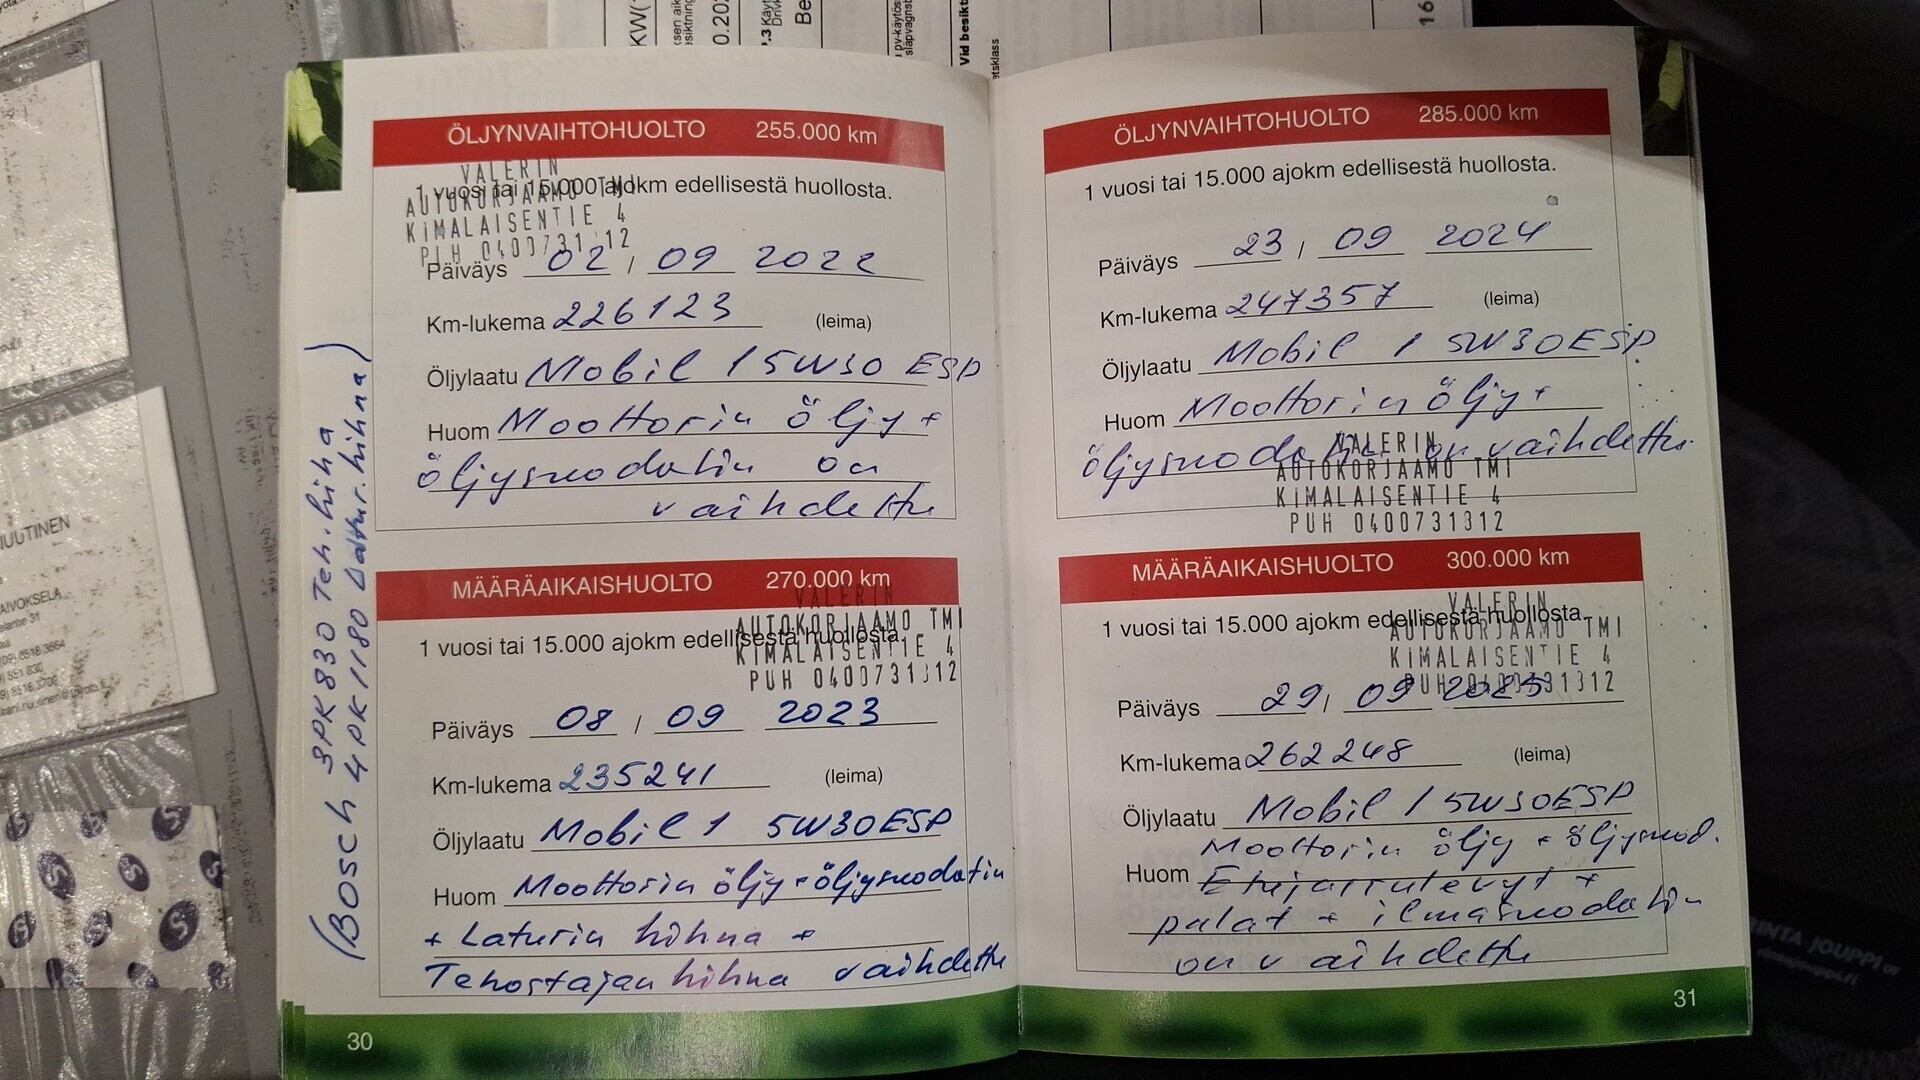 KW(
0.202
P.3 Käyt
Drivk
Be
Vid besikt
etsklass
16
ÖLJYNVAIHTOHUOLTO 255.000 km
VALERIN
AUTOKORJAAMO TMI
KIMALAISENTIE 4
1 vuosi tai 15.000 ajokm edellisestä huollosta.
Päiväys 02 / 09 2022
Km-lukema 226123 (leima)
Öljylaatu Mobil 1 5W30 ESP
Huom Moottorin öljy +
öljysuodatin on
vaihdettu
(BOSCH 3PK830 Teh.hihna
4PK1180 Lattur.hihna)
MÄÄRÄAIKAISHUOLTO 270.000 km
VALERIN
AUTOKORJAAMO TMI
KIMALAISENTIE 4
PUH 0400731312
1 vuosi tai 15.000 ajokm edellisestä huollosta.
Päiväys 08 / 09 2023
Km-lukema 235241 (leima)
Öljylaatu Mobil 1 5W30ESP
Huom Moottorin öljy + öljysuodatin
+ Laturin hihna +
Tehostajan hihna vaihdettu
30
ÖLJYNVAIHTOHUOLTO 285.000 km
1 vuosi tai 15.000 ajokm edellisestä huollosta.
Päiväys 23 / 09 2024
Km-lukema 247357 (leima)
Öljylaatu Mobil 1 5W30ESP
Huom Moottorin öljy +
öljysuodatin on vaihdettu
VALERIN
AUTOKORJAAMO TMI
KIMALAISENTIE 4
PUH 0400731312
MÄÄRÄAIKAISHUOLTO 300.000 km
VALERIN
AUTOKORJAAMO TMI
KIMALAISENTIE 4
PUH 0400731312
1 vuosi tai 15.000 ajokm edellisestä huollosta.
Päiväys 29 / 09 2025
Km-lukema 262248 (leima)
Öljylaatu Mobil 1 5W30ESP
Moottorin öljy + öljysuod.
Huom Etujarrulevyt +
palat + ilmasuodatin
on vaihdettu
31
RINTA JOUPPI